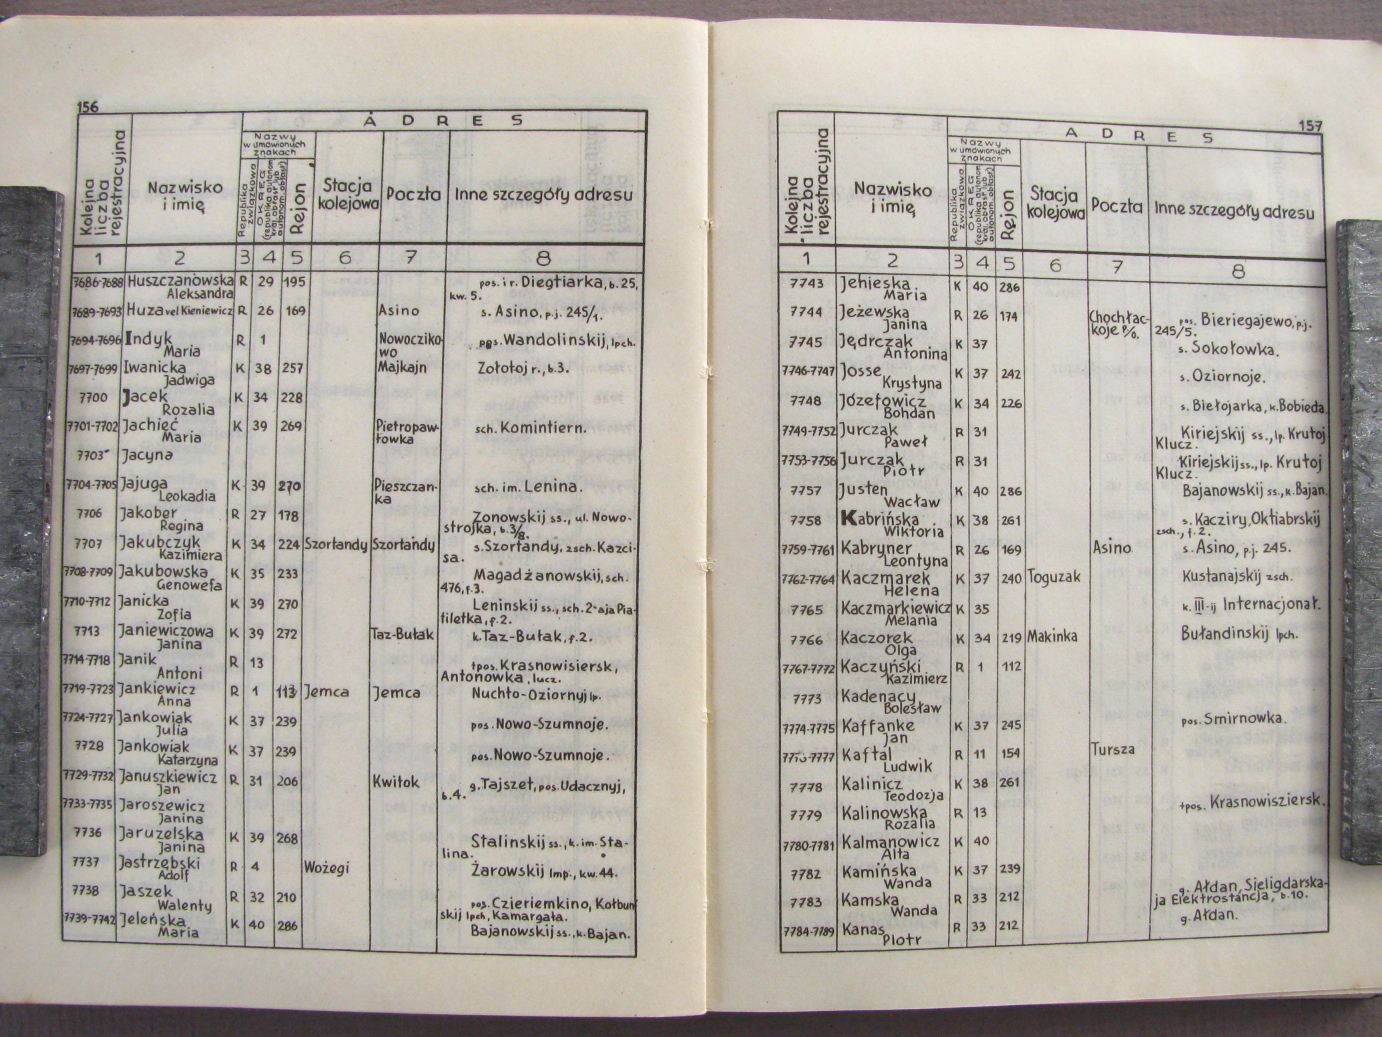 156
A D R E S
Kolejna liczba rejestracyjna
Nazwisko i imię
Nazwy w umówionych znakach
Republika związkowa
OKRĘG (republika autonom. kraj, obłast' lub autonom. obłast')
Rejon
Stacja kolejowa
Poczta
Inne szczegóły adresu
1 2 3 4 5 6 7 8
7686-7688 Huszczanowska Aleksandra R 29 195 pos. i r. Diegtiarka, b. 25, kw. 5.
7689-7693 Huza vel Kieniewicz R 26 169 Asino s. Asino, p.j. 245/1.
7694-7696 Indyk Maria R 1 Nowocziko-wo pos. Wandolinskij, lpch.
7697-7699 Iwanicka Jadwiga K 38 257 Majkajn Zołotoj r., b. 3.
7700 Jacek Rozalia K 34 228
7701-7702 Jachieć Maria K 39 269 Pietropaw-łowka sch. Komintiern.
7703 Jacyna
7704-7705 Jajuga Leokadia K 39 270 Pieszczan-ka sch. im. Lenina.
7706 Jakober Regina R 27 178 Zonowskij ss., ul. Nowo-strojka, b. 3/8.
7707 Jakubczyk Kazimiera K 34 224 Szortandy Szortandy s. Szortandy, zsch. Kazci-sa.
7708-7709 Jakubowska Genowefa K 35 233 Magadżanowskij, sch. 476, f. 3.
7710-7712 Janicka Zofia K 39 270 Leninskij ss., sch. 2-aja Pia-tiletka, f. 2.
7713 Janiewiczowa Janina K 39 272 Taz-Bułak k. Taz-Bułak, f. 2.
7714-7718 Janik Antoni R 13 tpos. Krasnowisiersk, Antonowka, lucz.
7719-7723 Jankiewicz Anna R 1 113 Jemca Jemca Nuchto-Oziornyj lp.
7724-7727 Jankowiak Julia K 37 239 pos. Nowo-Szumnoje.
7728 Jankowiak Katarzyna K 37 239 pos. Nowo-Szumnoje.
7729-7732 Januszkiewicz Jan R 31 206 Kwitok g. Tajszet, pos. Udacznyj, b. 4.
7733-7735 Jaroszewicz Janina
7736 Jaruzelska Janina K 39 268 Stalinskij ss., k. im. Sta-lina.
7737 Jastrzębski Adolf R 4 Wożegi Żarowskij lmp., kw. 44.
7738 Jaszek Walenty R 32 210 pos. Czieriemkino, Kołbun skij lpch, Kamargała.
7739-7742 Jeleńska Maria K 40 286 Bajanowskij ss., k. Bajan.
157
A D R E S
Kolejna liczba rejestracyjna
Nazwisko i imię
Nazwy w umówionych znakach
Republika związkowa
OKRĘG (republika autonom. kraj, obłast' lub autonom. obłast')
Rejon
Stacja kolejowa
Poczta
Inne szczegóły adresu
1 2 3 4 5 6 7 8
7743 Jehieska Maria K 40 286
7744 Jeżewska Janina R 26 174 Chochłac-koje p/o. pos. Bieriegajewo, p.j. 245/5.
7745 Jędrczak Antonina K 37 s. Sokołowka.
7746-7747 Josse Krystyna K 37 242 s. Oziornoje.
7748 Józefowicz Bohdan K 34 226 s. Biełojarka, k. Bobieda.
7749-7752 Jurczak Paweł R 31 Kiriejskij ss., lp. Krutoj Klucz.
7753-7756 Jurczak Piotr R 31 Kiriejskij ss., lp. Krutoj Klucz.
7757 Justen Wacław K 40 286 Bajanowskij ss., k. Bajan.
7758 Kabrińska Wiktoria K 38 261 s. Kacziry, Oktiabrskij zsch., f. 2.
7759-7761 Kabryner Leontyna R 26 169 Asino s. Asino, p.j. 245.
7762-7764 Kaczmarek Helena K 37 240 Toguzak Kustanajskij zsch.
7765 Kaczmarkiewicz Melania K 35 k. III-ij Internacjonał.
7766 Kaczorek Olga K 34 219 Makinka Bułandinskij lpch.
7767-7772 Kaczyński Kazimierz R 1 112
7773 Kadenacy Bolesław
7774-7775 Kaffanke Jan K 37 245 pos. Smirnowka.
7776-7777 Kaftal Ludwik R 11 154 Tursza
7778 Kalinicz Teodozja K 38 261
7779 Kalinowska Rozalia R 13 tpos. Krasnowiszersk.
7780-7781 Kalmanowicz Alta K 40
7782 Kamińska Wanda K 37 239
7783 Kamska Wanda R 33 212 g. Ałdan, Sieligdarska-ja Elektrostancja, b. 10.
7784-7789 Kanas Piotr R 33 212 g. Ałdan.